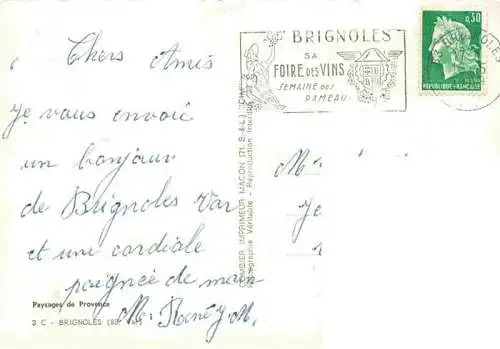 Chers Amis
Je vous envoie
un bonjour
de Brignoles Var
et une cordiale
poignée de main
Mr René J.M.
Paysages de Provence
2 C - BRIGNOLES (83. Var)
COMBIER IMPRIMEUR MACON (71. S.-&-L.) "CIM"
Photographie Véritable - Reproduction Interdite
BRIGNOLES
SA
FOIRE DES VINS
SEMAINE DES
RAMEAU
0,30
REPUBLIQUE FRANÇAISE
BRIGNOLES
M